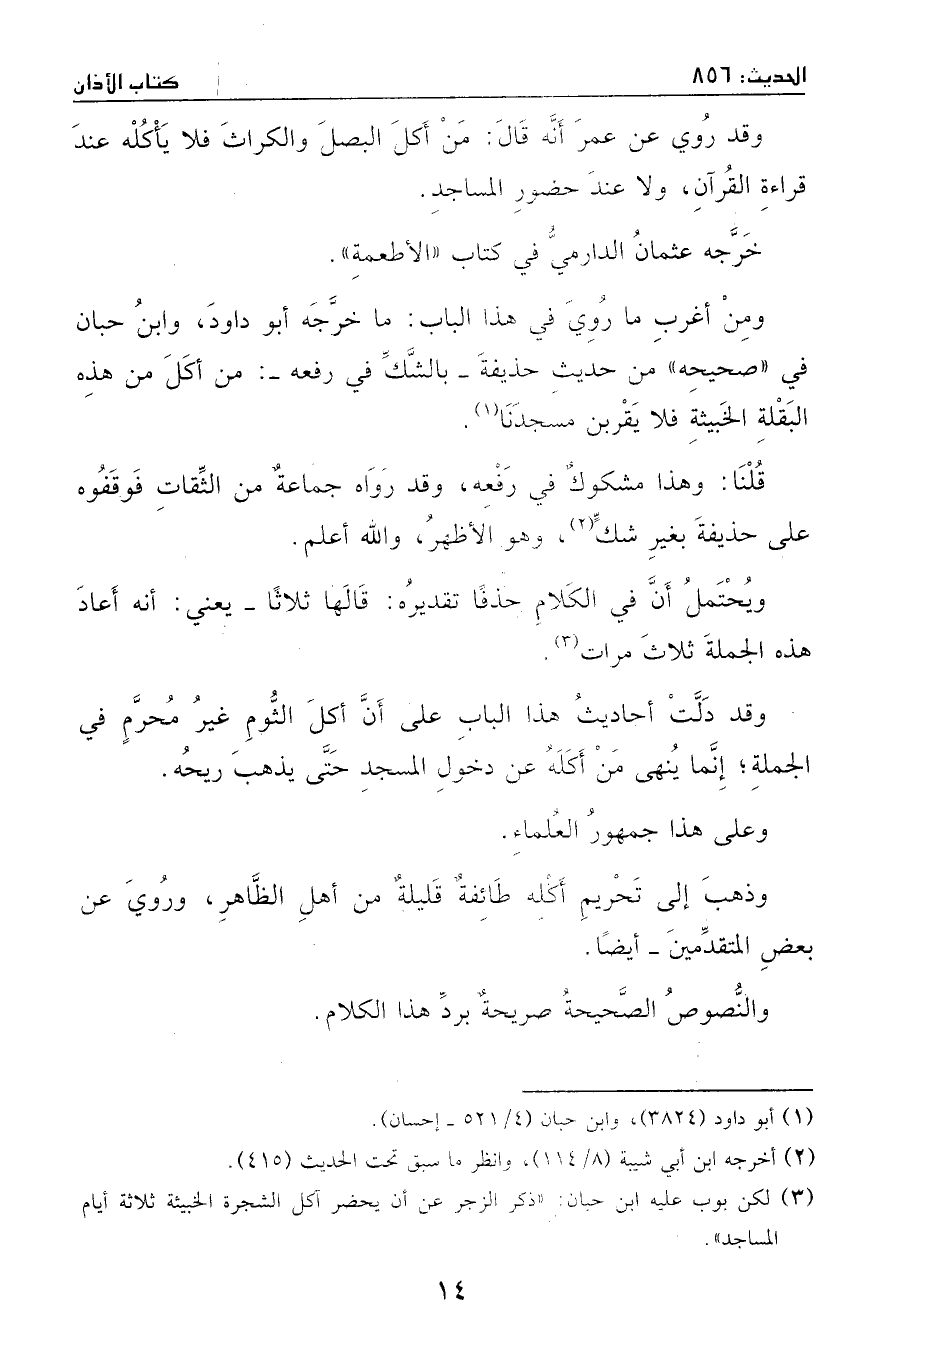 الحديث: ٨٥٦
كتاب الأذان
وقد رُوي عن عمرَ أَنَّه قَالَ: مَنْ أَكلَ البصلَ والكراثَ فلا يَأْكُلْه عندَ
قراءةِ القُرآنِ، ولا عندَ حضورِ المساجدِ.
خَرَّجه عثمانُ الدارميُّ في كتاب «الأطعمةِ».
ومِنْ أغربِ ما رُوِيَ في هذا البابِ: ما خرَّجَه أبو داودَ، وابنُ حبان
في «صحيحِه» من حديثِ حذيفةَ ـ بالشَّكِّ في رفعه ـ: من أكلَ من هذِه
البَقْلةِ الخَبيثةِ فلا يَقْربن مسجدَنَا(١).
قُلْنَا: وهذا مشكوكٌ في رَفْعه، وقد رَوَاه جماعةٌ من الثِّقاتِ فَوقَفُوه
على حذيفةَ بغيرِ شكٍّ(٢)، وهو الأظهرُ، والله أعلم.
ويُحْتَملُ أَنَّ في الكَلامِ حذفًا تقديرُه: قَالَها ثلاثًا ـ يعني: أنه أَعادَ
هذه الجملةَ ثلاثَ مرات(٣).
وقد دَلَّتْ أحاديثُ هذا البابِ على أَنَّ أكلَ الثُّومِ غيرُ مُحرَّمٍ في
الجملةِ؛ إِنَّما يُنهى مَنْ أَكَلَهُ عن دخولِ المسجدِ حَتَّى يذهبَ ريحُه.
وعلى هذا جمهورُ العُلماءِ.
وذهبَ إلى تَحْريمِ أَكْلِه طَائفةٌ قَليلةٌ من أهلِ الظَّاهرِ، ورُويَ عن
بعضِ المتقدِّمينَ ـ أيضًا.
والنُّصوصُ الصَّحيحةُ صريحةٌ بردِّ هذا الكلام.
(١) أبو داود (٣٨٢٤)، وابن حبان (٤/ ٥٢١ ـ إحسان).
(٢) أخرجه ابن أبي شيبة (٨/ ١١٤)، وانظر ما سبق تحت الحديث (٤١٥).
(٣) لكن بوب عليه ابن حبان: «ذكر الزجر عن أن يحضر آكل الشجرة الخبيثة ثلاثة أيام
المساجد».
١٤